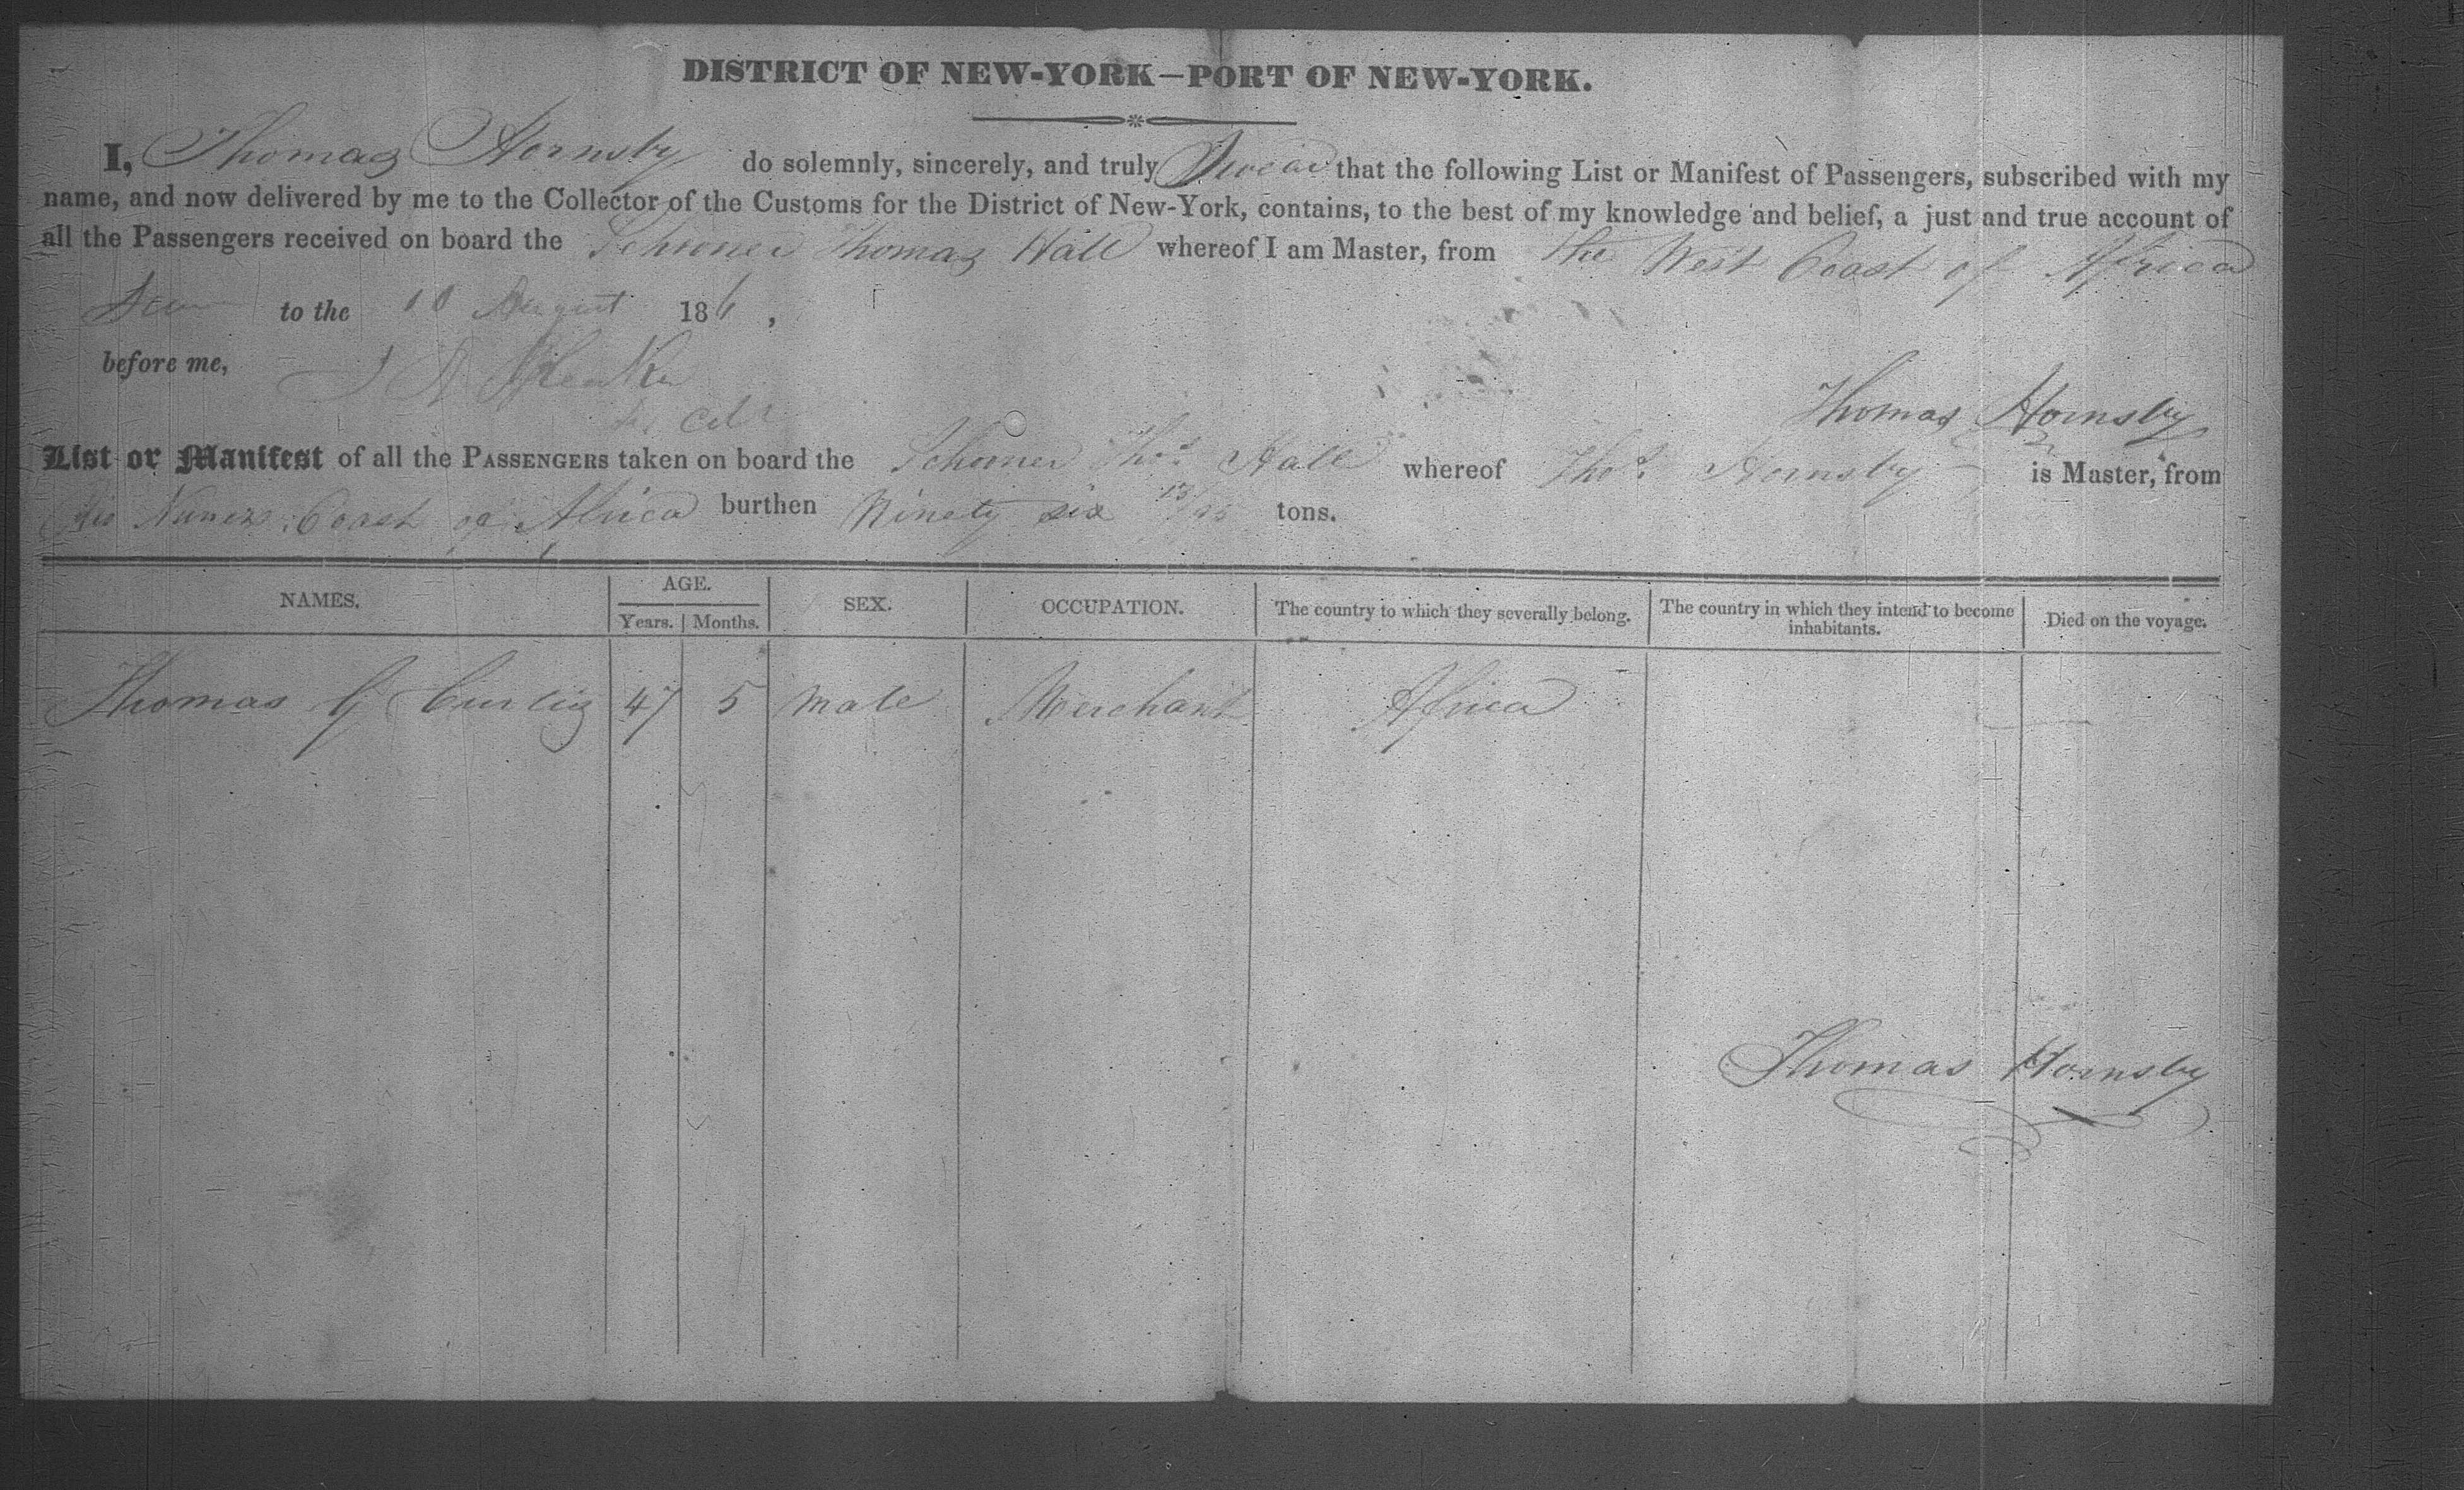 DISTRICT OF NEW-YORK—PORT OF NEW-YORK.
I, Thomas Hornsby do solemnly, sincerely, and truly Swear that the following List or Manifest of Passengers, subscribed with my
name, and now delivered by me to the Collector of the Customs for the District of New-York, contains, to the best of my knowledge and belief, a just and true account of
all the Passengers received on board the Schooner Thomas Hall whereof I am Master, from the West Coast of Africa
to the 10 August 186 ,
before me,
Thomas Hornsby
List or Manifest of all the PASSENGERS taken on board the Schooner Thos. Hall whereof Thos. Hornsby is Master, from
Rio Nunez Coast of Africa burthen Ninety six tons.
NAMES. AGE. SEX. OCCUPATION. The country to which they severally belong. The country in which they intend to become inhabitants. Died on the voyage.
Years. Months.
Thomas G Curtis 47 5 Male Merchant Africa
Thomas Hornsby